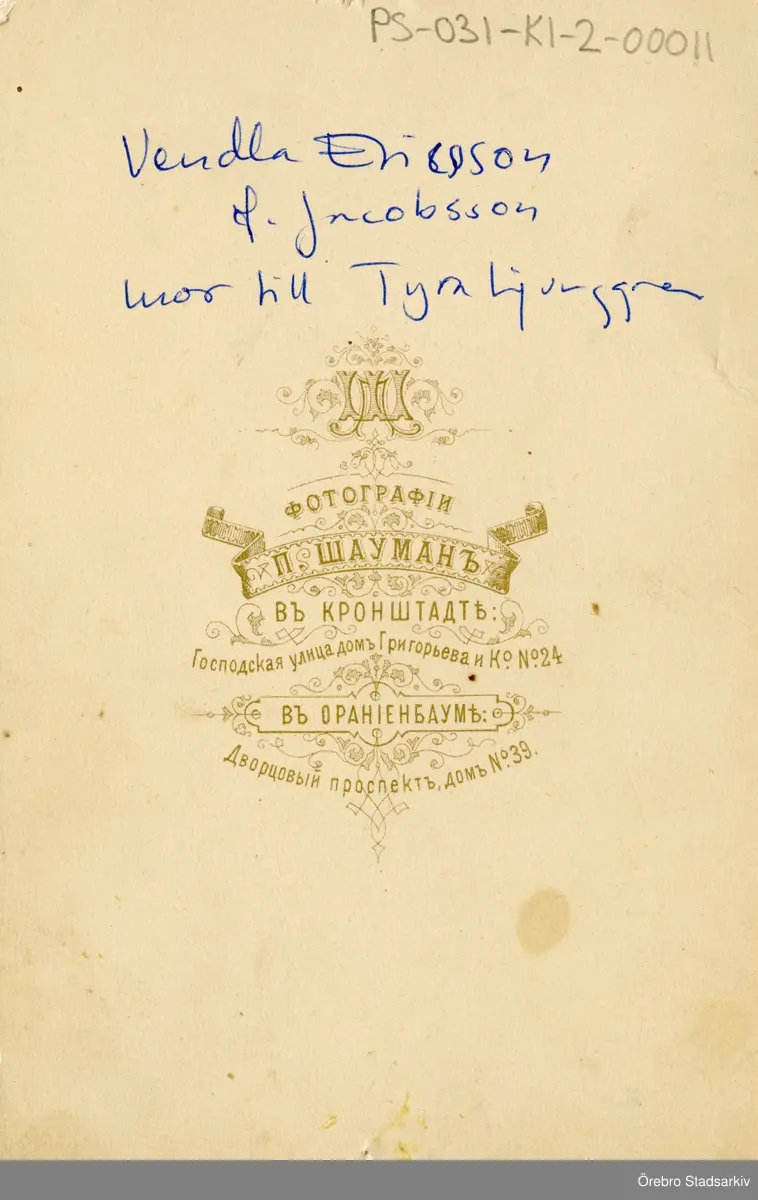 PS-031-K1-2-00011
Vendla Ericsson
f. Jacobsson
mor till Tyra Ljunggren
ФОТОГРАФІИ
П. ШАУМАНЪ
ВЪ КРОНШТАДТѢ:
Господская улица домъ Григорьева и Ко No24
ВЪ ОРАНІЕНБАУМѢ:
Дворцовый проспектъ, домъ No39.
Örebro Stadsarkiv